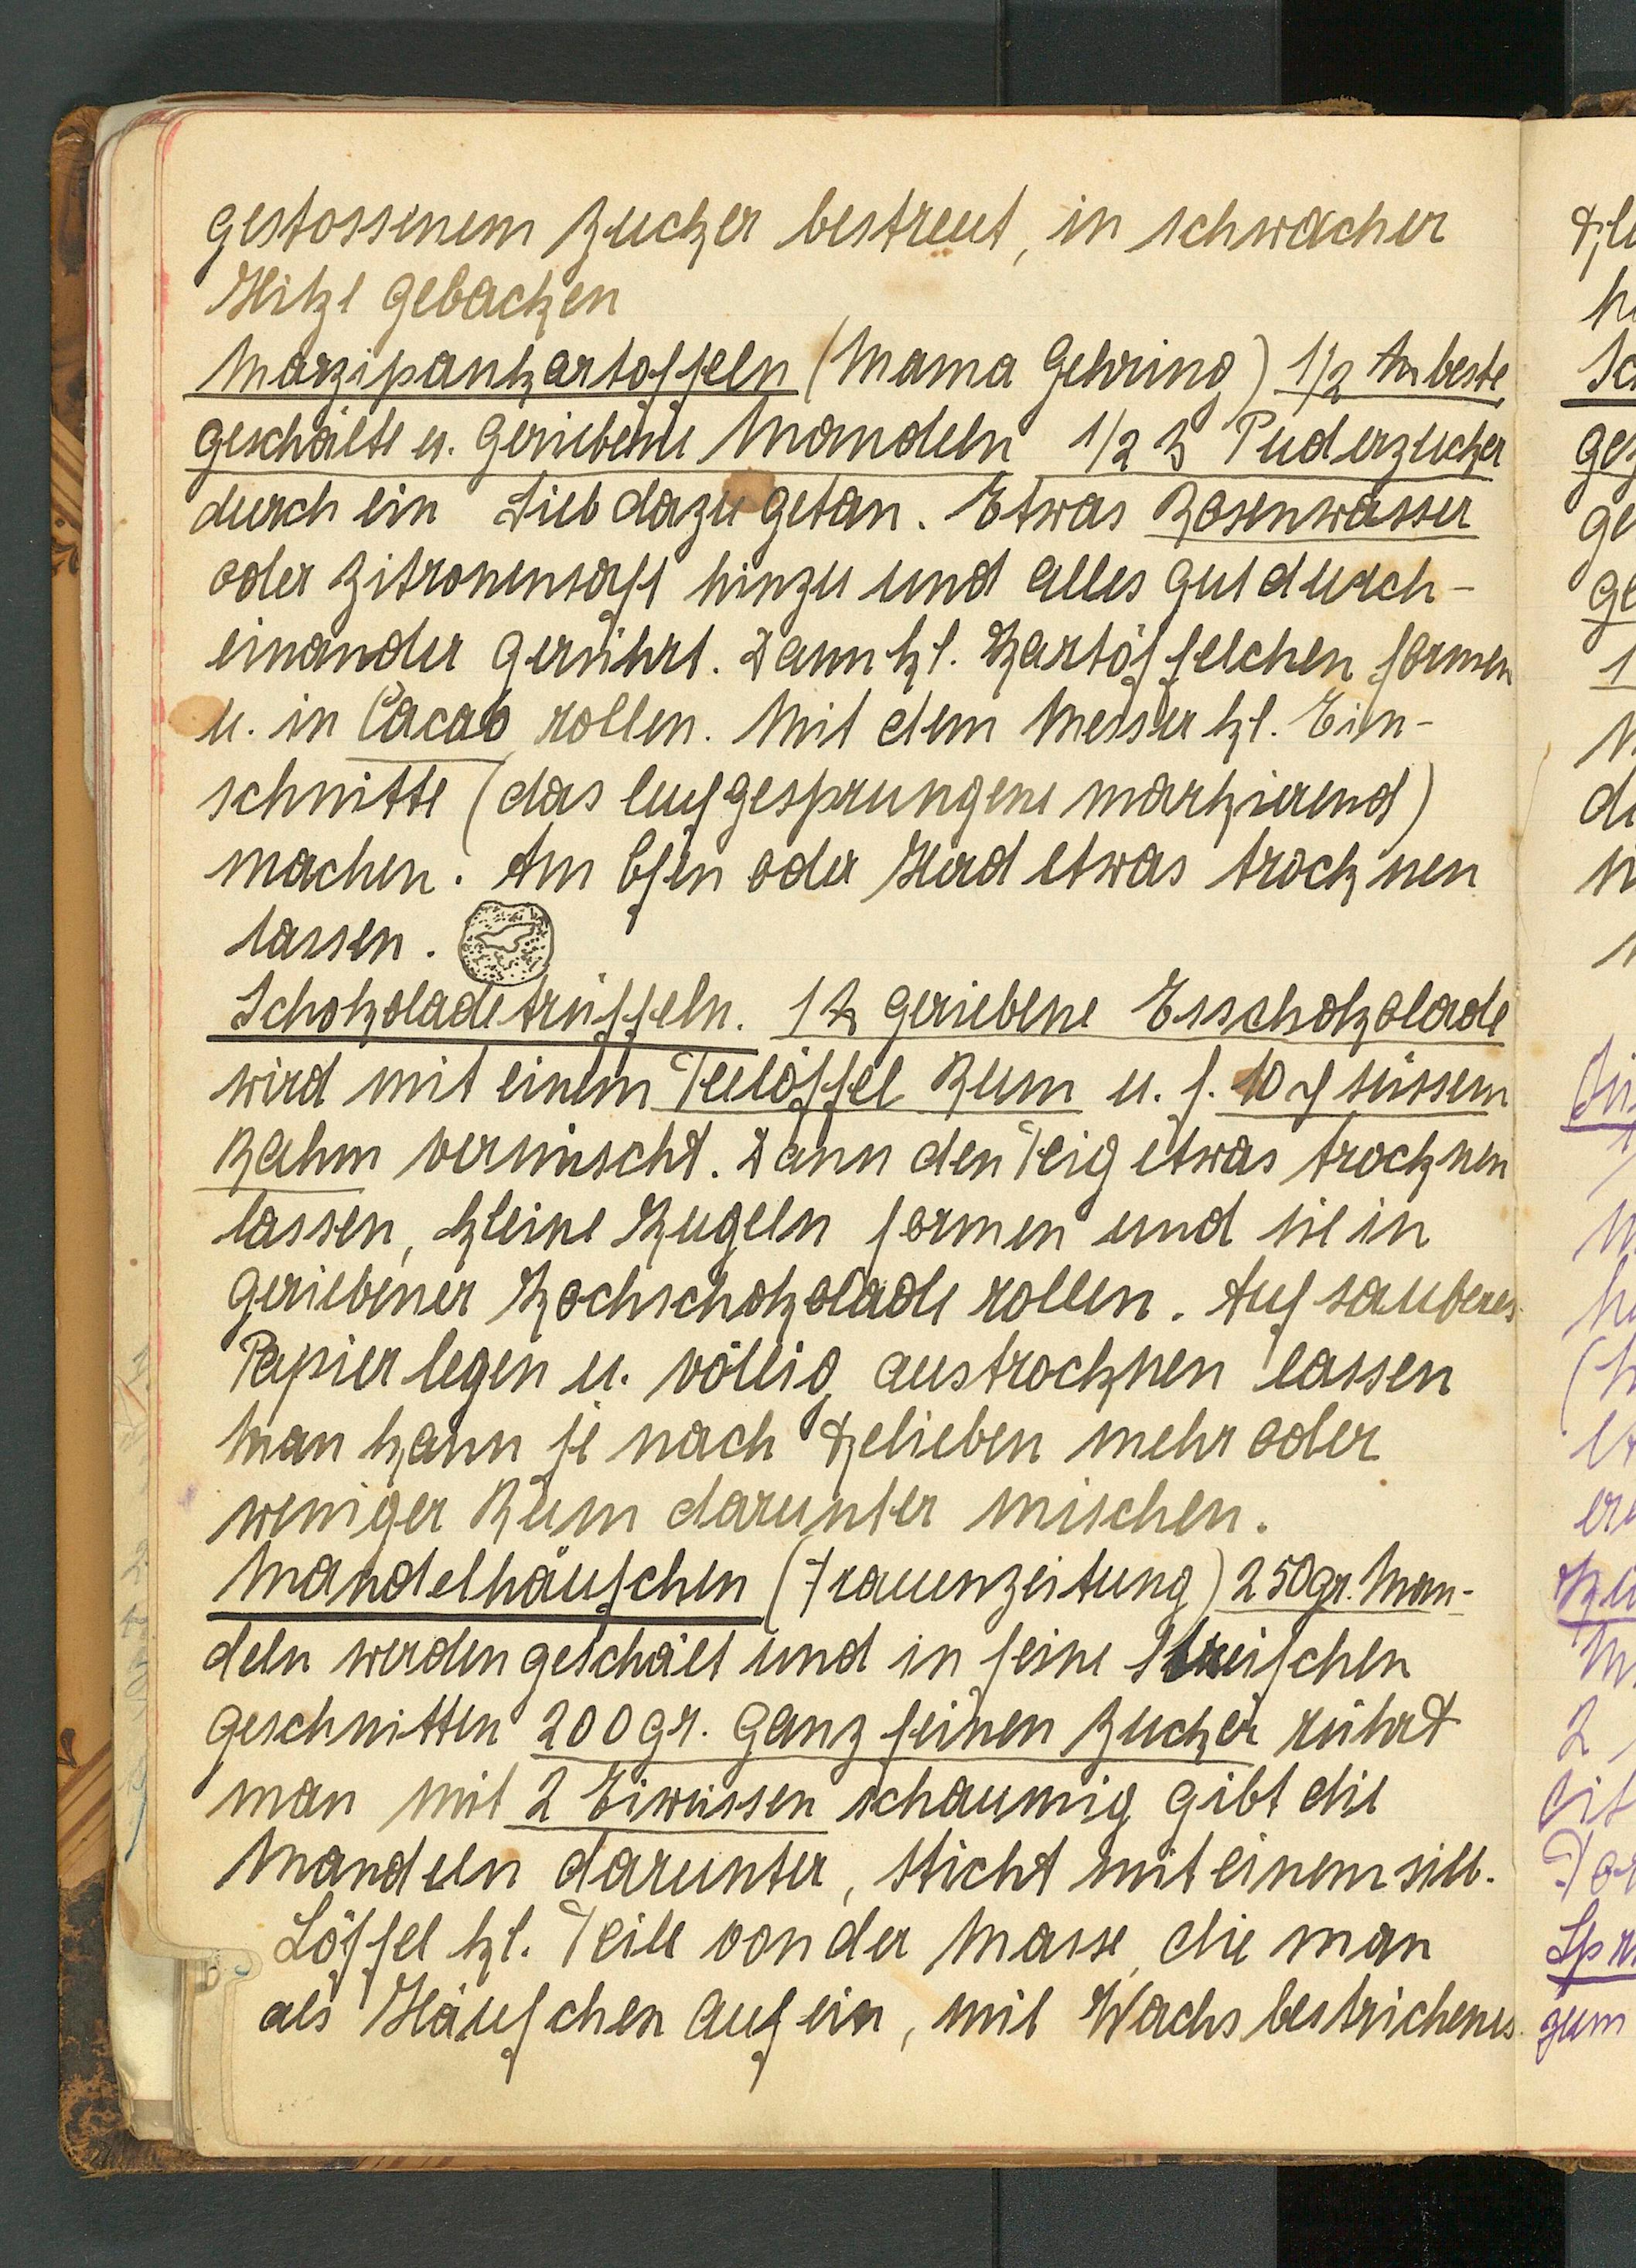 gestossenem Zucker bestreut, in schwacher
Hitze gebacken
Marzipankartoffeln (Mama Gehring) 1/2 ℔ beste
geschälte u. geriebene Mandeln 1/2 ℔ Puderzucker
durch ein Sieb dazu getan. Etwas Rosenwasser
oder Zitronensaft hinzu und alles gut durch-
einander gerührt. Dann kl. Kartöffelchen formen
u. in Cacao rollen. Mit dem Messer kl. Ein-
schnitte (das Aufgesprungene markierend)
machen. Am Ofen oder Herd etwas trocknen
lassen.
Schokoladetrüffeln. 1 ℔ geriebene Esschokolade
wird mit einem Teelöffel Rum u. f. 10 ₰ süssem
Rahm vermischt. Dann den Teig etwas trocknen
lassen, kleine Kugeln formen und sie in
geriebener Kochschokolade rollen. Auf sauberes
Papier legen u. völlig austrocknen lassen
Man kann je nach Belieben mehr oder
weniger Rum darunter mischen.
Mandelhäufchen (Frauenzeitung) 250gr. Man-
deln werden geschält und in feine Streifchen
geschnitten 200 gr. ganz feinen Zucker rührt
man mit 2 Eiweissen schaumig gibt die
Mandeln darunter, sticht mit einem silb.
Löffel kl. Teile von der Masse, die man
als Häufchen auf ein, mit Wachs bestrichenes